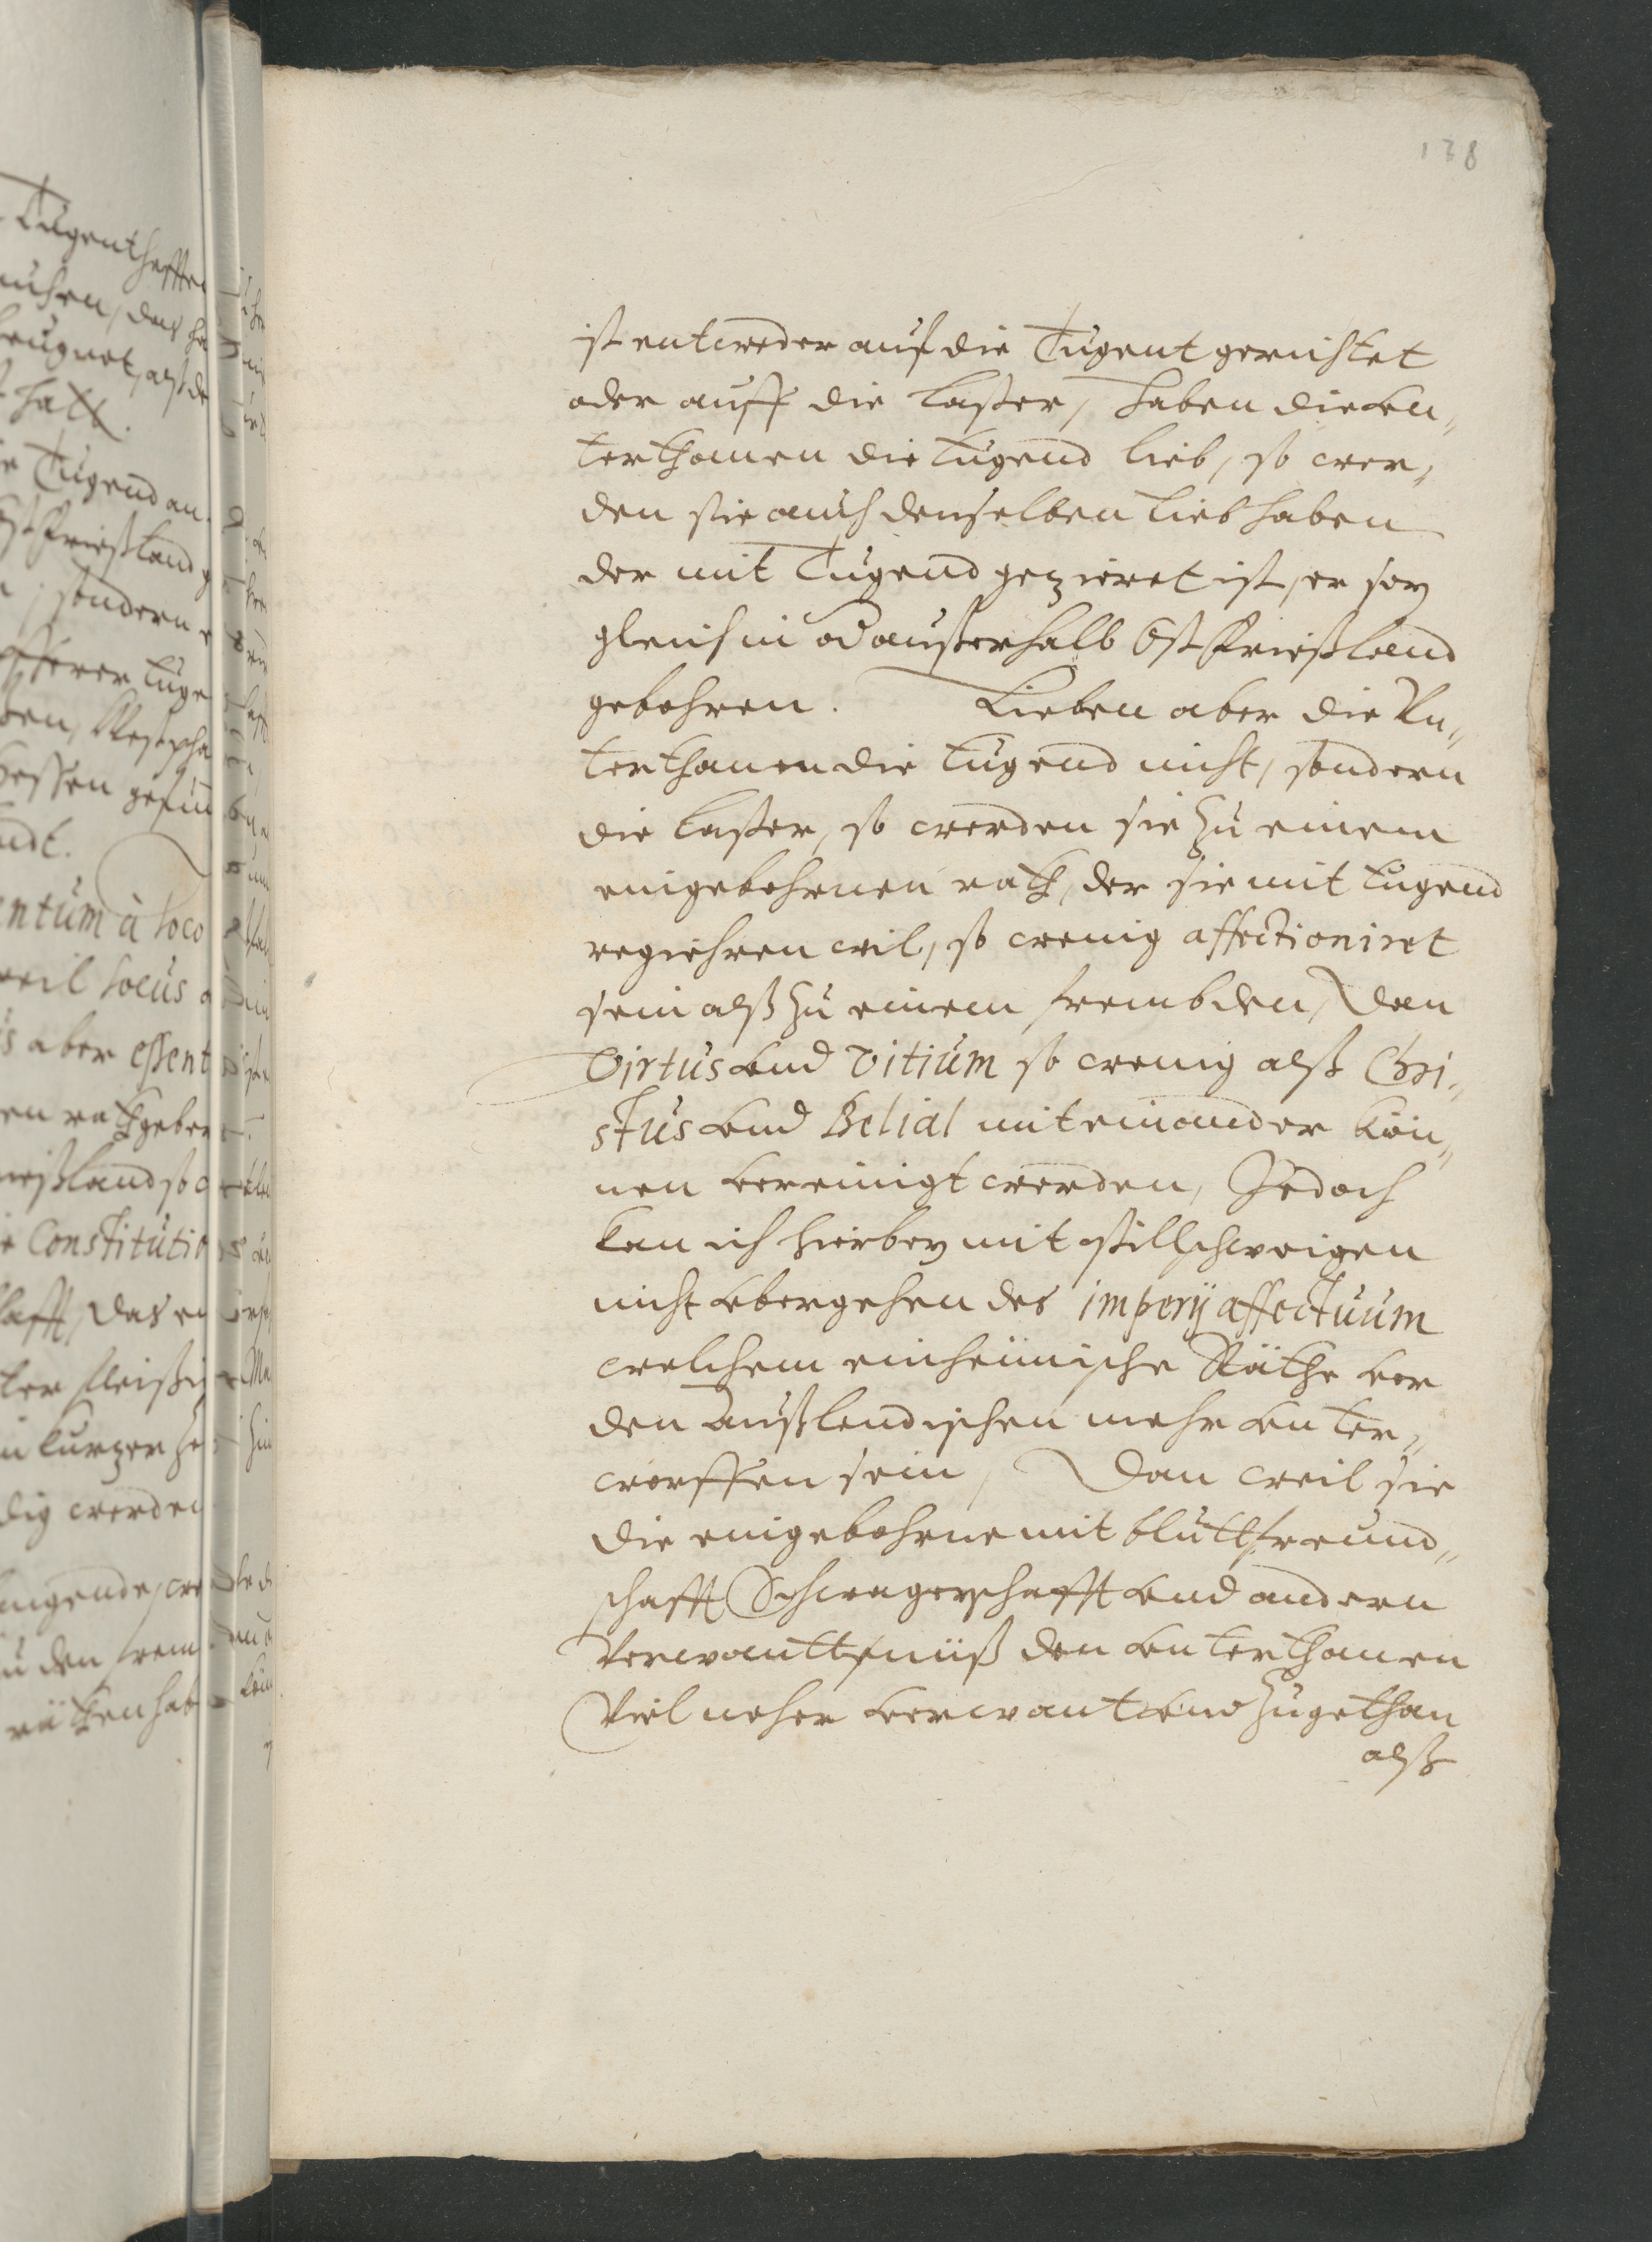 138
ist entweder auf die Tugent gerichtet
oder auff die laster, haben die vn„
terthanen die tugend lieb, so wer„
den sie auch denselben lieb haben
der mit Tugend gezieret ist, er sey
gleich in od außerhalb Ostfrießland
gebohren. Lieben aber die Vn„
terthanen die tugend nicht, sondern
die laster, so werden sie zu einem
eingebohrnen rath, der sie mit tugend
regiehren wil, so wenig affectioniret
sein alß zu einem frembden, dan
Virtus vnd vitium so wenig alß Chri„
stus vnd Belial mit einander kön„
nen vereinigt werden, Jedoch
kan ich hierbey mit stillschweigen
nicht vbergehen des imperij affectuum
welchem einheimische Räthe vor
den Außlendischen mehr vnter„
worffen sein, Dan weil sie
die eingebohrne mit bluttfreund„
schafft Schwagerschafft vnd andern
Verwanttnüß den vnterthanen
Viel neher verwant vnd zugethan
alß